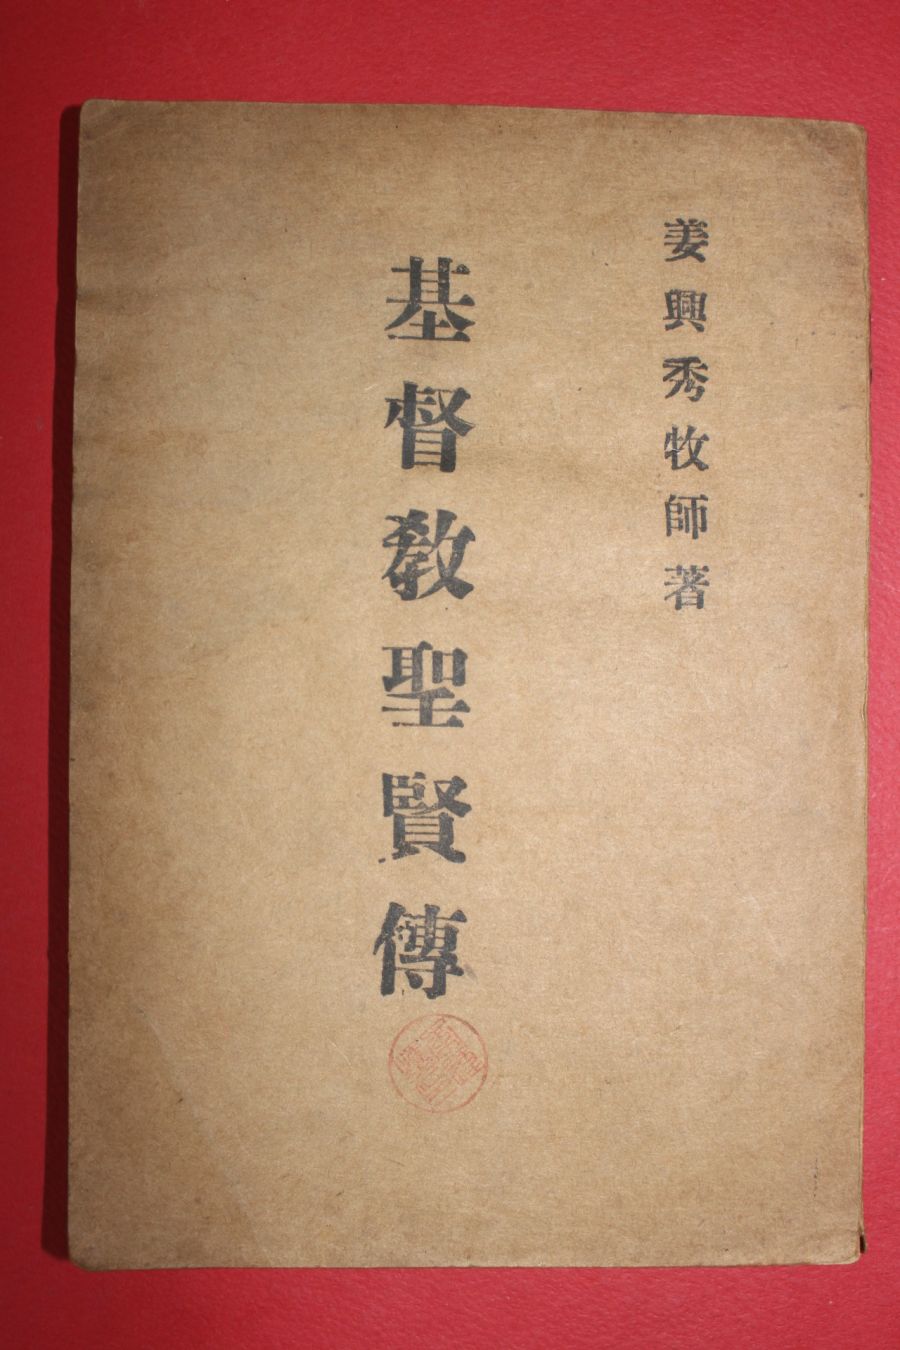 姜興秀牧師著
基督敎聖賢傳